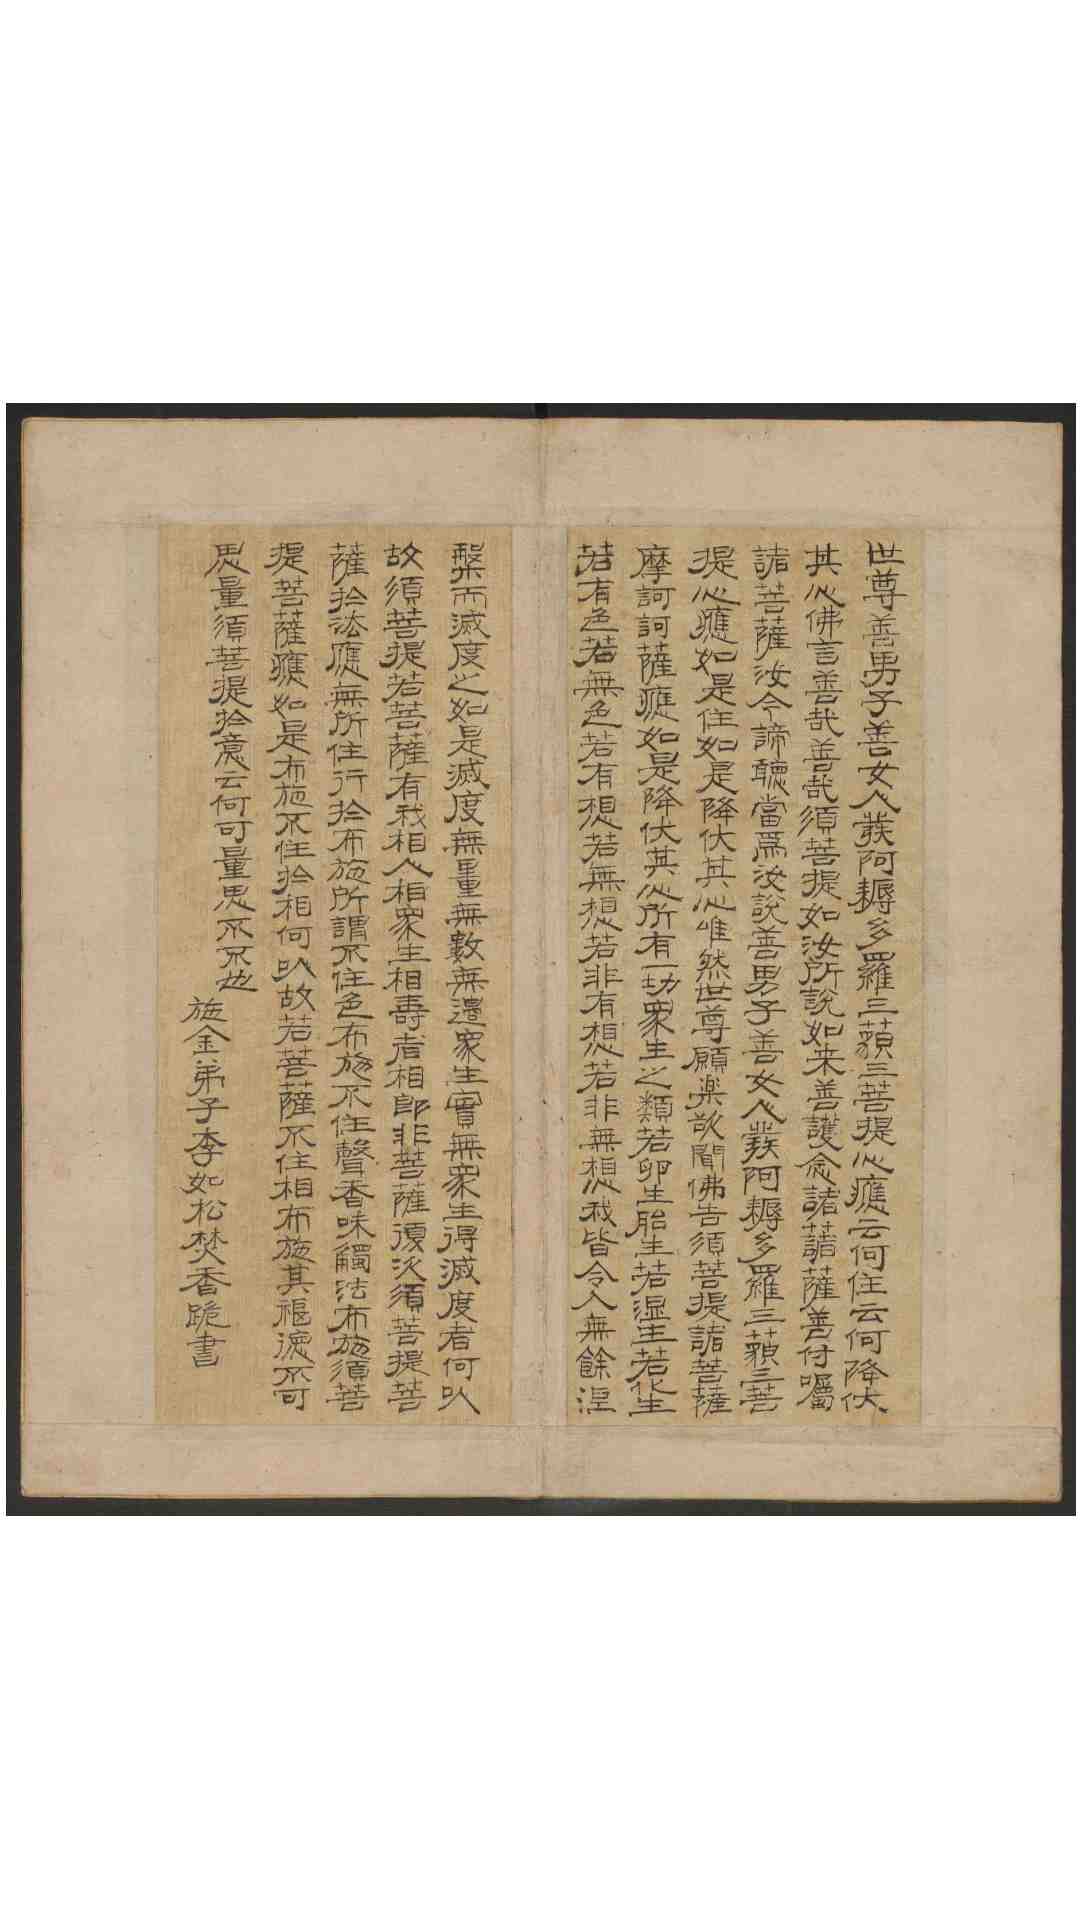 世尊善男子善女人發阿耨多羅三藐三菩提心應云何住云何降伏
其心佛言善哉善哉須菩提如汝所說如来善護念諸藷薩善付囑
諸菩薩汝今諦聽當爲汝說善男子善女人發阿耨多羅三藐三菩
提心應如是住如是降伏其心唯然世尊願樂欲聞佛告須菩提諸菩薩
摩訶訶薩應如是降伏其心所有一切眾生之類若卵生胎生若湿生若化生
若有色若無色若有想若無想若非有想若非無想我皆令入無餘涅
槃而滅度之如是滅度無量無數無邊眾生實無眾生得滅度者何以
故須菩提若菩薩有我相人相眾生相壽者相即非菩薩復次須菩提菩
薩於法應無所住行於布施所謂不住色布施不住聲香味觸法布施須菩
提菩薩應如是布施不住於相何以故若菩薩不住相布施其福德不可
思量須菩提於意云何可量思不不也
施金弟子李如松焚香跪書